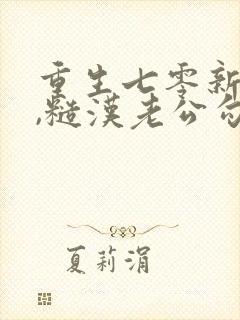 重生七零新
,糙汉老公勾
夏莉涓